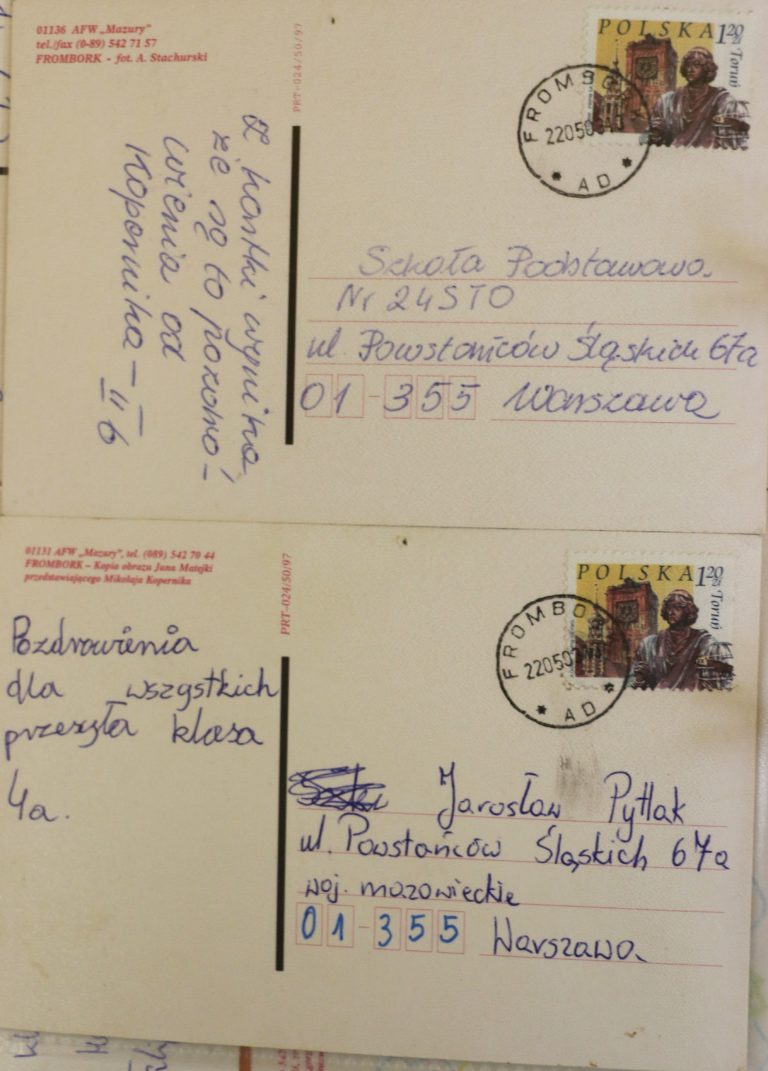 01136 AFW „Mazury"
tel./fax (0-89) 542 71 57
FROMBORK - fot. A. Stachurski
PRT-024/50/97
POLSKA 120
Toruń
FROMBORK
AD
Z kartki wynika,
że są to pozdro-
wienia od
Kopernika - II b
Szkoła Podstawowa
Nr 24 STO
ul. Powstańców Śląskich 67a
01-355 Warszawa
01131 AFW „Mazury", tel. (089) 542 70 44
FROMBORK – Kopia obrazu Jana Matejki
przedstawiającego Mikołaja Kopernika
PRT-024/50/97
POLSKA 120
Toruń
FROMBORK
AD
Pozdrowienia
dla wszystkich
przesyła klasa
4a.
Jarosław Pytlak
ul. Powstańców Śląskich 67a
woj. mazowieckie
01-355 Warszawa